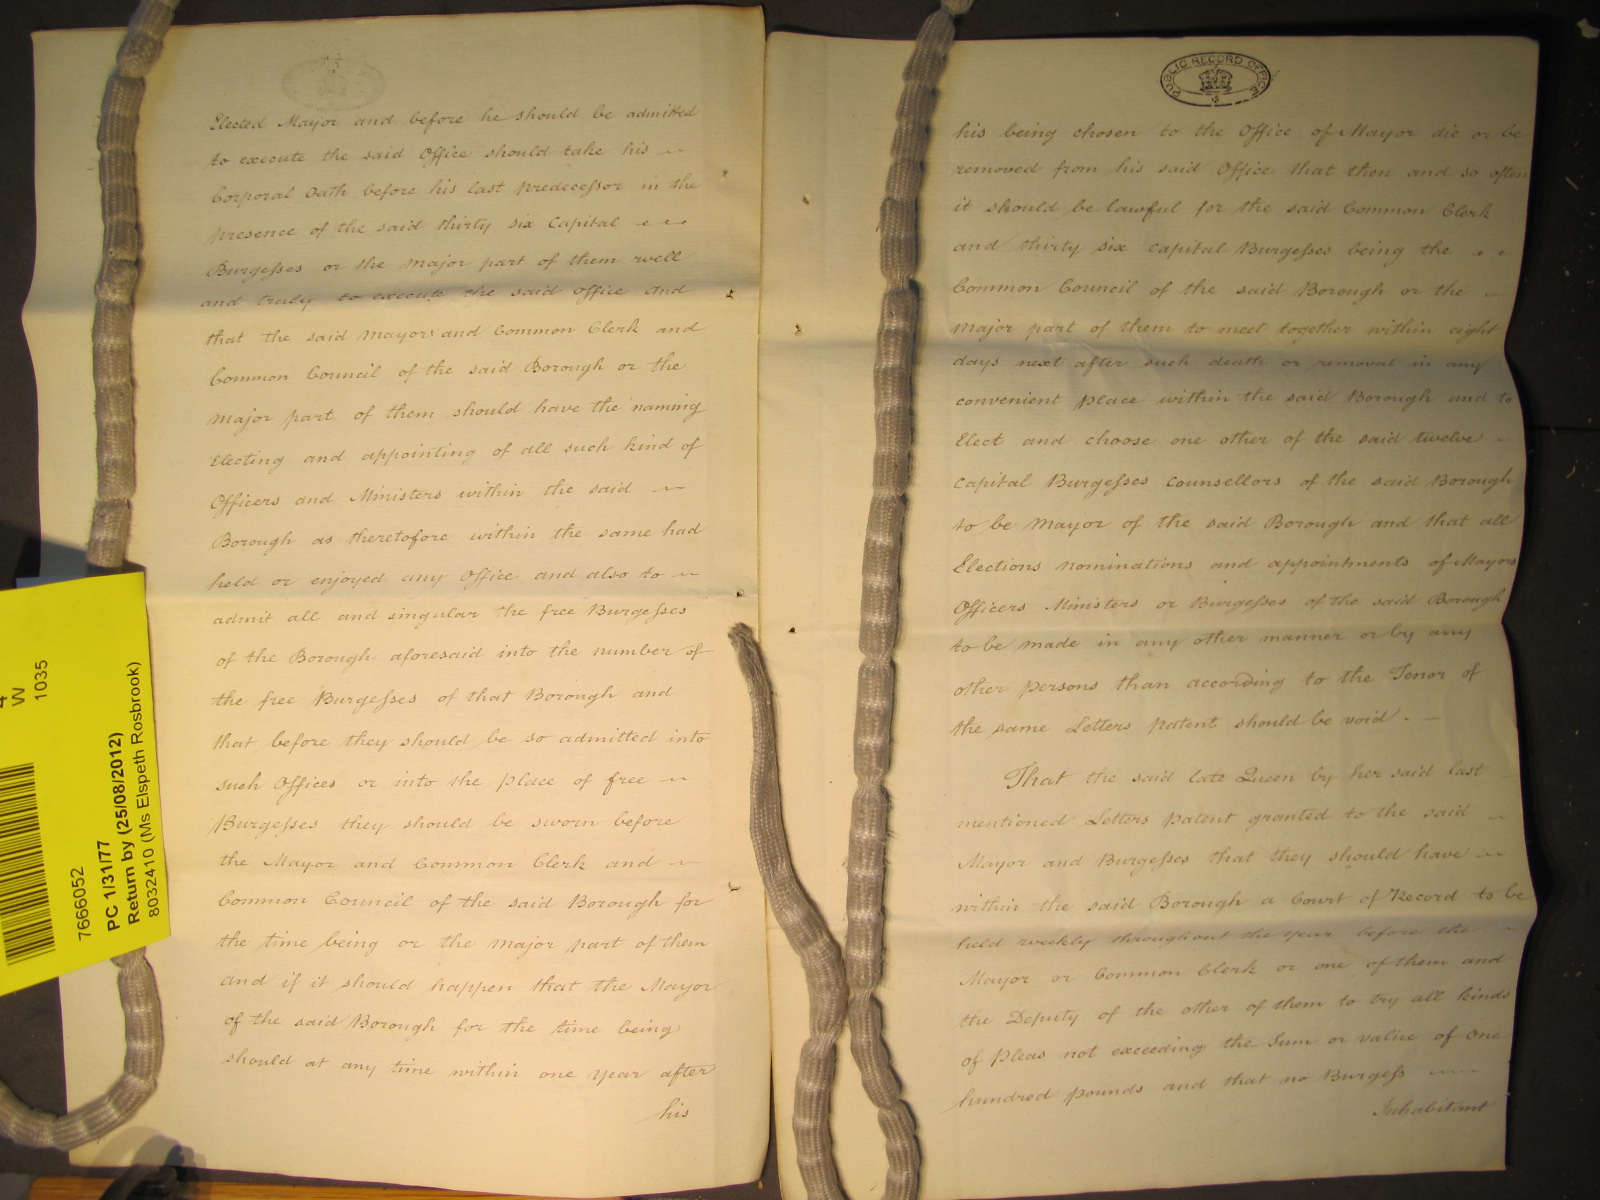 Elected Mayor and before he should be admitted
to execute the said Office should take his
Corporal Oath before his last predecessor in the
presence of the said thirty six Capital
Burgesses or the major part of them well
and truly to execute the said office And
that the said Mayors and Common Clerk and
Common Council of the said Borough or the
Major part of them should have the naming
Electing and appointing of all such kind of
Officers and Ministers within the said
Borough as theretofore within the same had
held or enjoyed any Office and also to
admit all and singular the free Burgesses
of the Borough aforesaid into the number of
the free Burgesses of that Borough and
that before they should be so admitted into
such Offices or into the place of free
Burgesses they should be sworn before
the Mayor and Common Clerk and
Common Council of the said Borough for
the time being or the Major part of them
and if it should happen that the Mayor
of the said Borough for the time being
should at any time within one Year after
his
PUBLIC RECORD OFFICE
his being chosen to the Office of Mayor die or be
removed from his said Office that then and so often
it should be lawful for the said Common Clerk
and thirty six Capital Burgesses being the
Common Council of the said Borough or the
Major part of them to meet together within eight
days next after such death or removal in any
convenient place within the said Borough and to
Elect and choose one other of the said twelve
Capital Burgesses counsellors of the said Borough
to be Mayor of the said Borough and that all
Elections nominations and appointments of Mayors
Officers Ministers or Burgesses of the said Borough
to be made in any other manner or by any
other persons than according to the Tenor of
the same Letters patent should be void.
That the said late Queen by her said last
mentioned Letters patent granted to the said
Mayor and Burgesses that they should have
within the said Borough a Court of Record to be
held weekly throughout the Year before the
Mayor or Common Clerk or one of them and
the Deputy of the other of them to try all kinds
of Pleas not exceeding the Sum or value of One
hundred pounds and that no Burgess
Inhabitant
4
W
1035
7666052
PC 1/31/77
Return by (25/08/2012)
8032410 (Ms Elspeth Rosbrook)